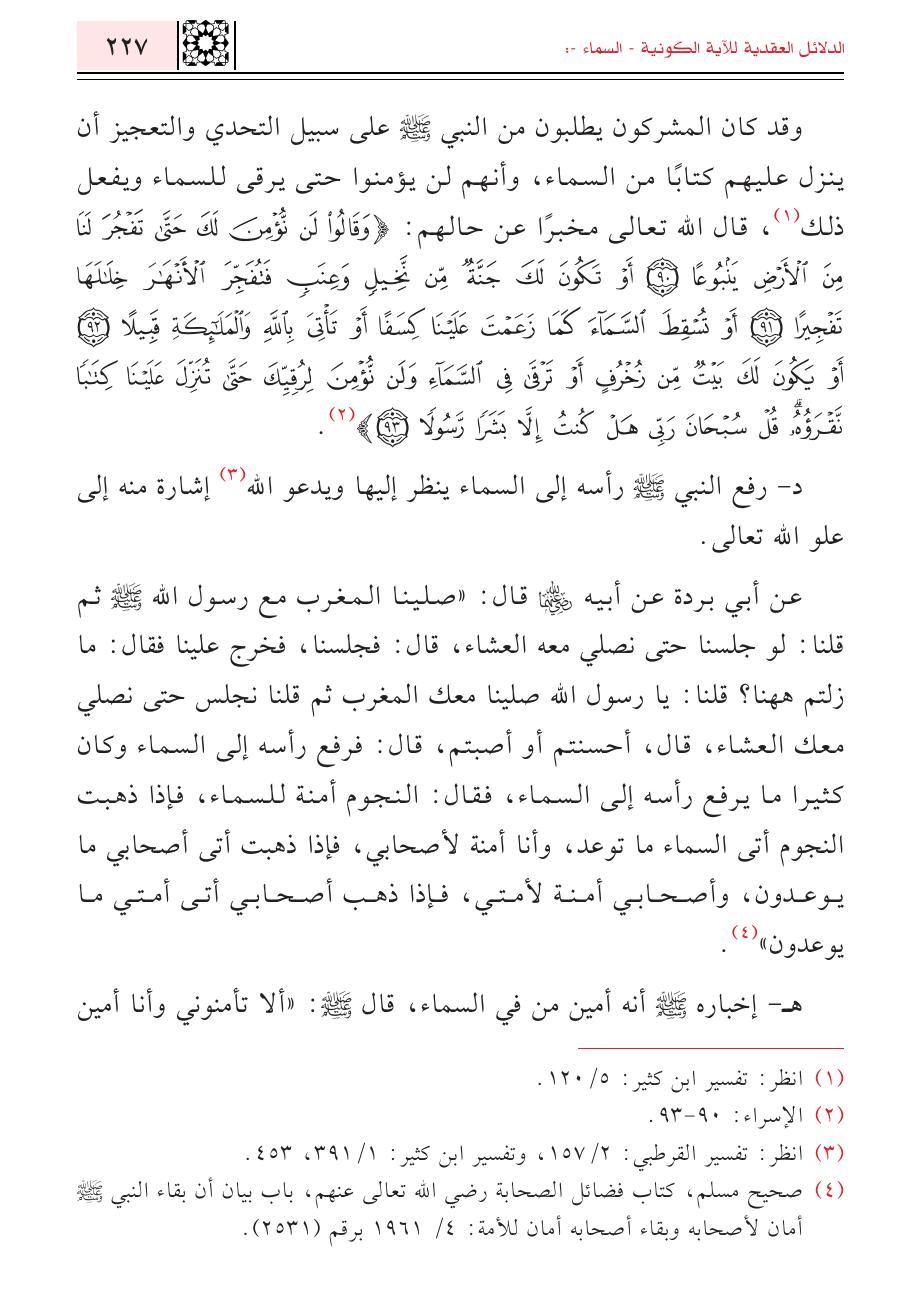 الدلائل العقدية للآية الكونية - السماء -: ٢٢٧
وقد كان المشركون يطلبون من النبي ﷺ على سبيل التحدي والتعجيز أن
ينزل عليهم كتابًا من السماء، وأنهم لن يؤمنوا حتى يرقى للسماء ويفعل
ذلك(١)، قال الله تعالى مخبرًا عن حالهم: ﴿وَقَالُوا۟ لَن نُّؤْمِنَ لَكَ حَتَّىٰ تَفْجُرَ لَنَا
مِنَ ٱلْأَرْضِ يَنۢبُوعًا ٩٠ أَوْ تَكُونَ لَكَ جَنَّةٌ مِّن نَّخِيلٍ وَعِنَبٍ فَتُفَجِّرَ ٱلْأَنْهَٰرَ خِلَٰلَهَا
تَفْجِيرًا ٩١ أَوْ تُسْقِطَ ٱلسَّمَآءَ كَمَا زَعَمْتَ عَلَيْنَا كِسَفًا أَوْ تَأْتِىَ بِٱللَّهِ وَٱلْمَلَٰٓئِكَةِ قَبِيلًا ٩٢
أَوْ يَكُونَ لَكَ بَيْتٌ مِّن زُخْرُفٍ أَوْ تَرْقَىٰ فِى ٱلسَّمَآءِ وَلَن نُّؤْمِنَ لِرُقِيِّكَ حَتَّىٰ تُنَزِّلَ عَلَيْنَا كِتَٰبًا
نَّقْرَؤُهُۥ ۗ قُلْ سُبْحَانَ رَبِّى هَلْ كُنتُ إِلَّا بَشَرًا رَّسُولًا ٩٣﴾(٢).
د- رفع النبي ﷺ رأسه إلى السماء ينظر إليها ويدعو الله(٣) إشارة منه إلى
علو الله تعالى.
عن أبي بردة عن أبيه رضي الله عنهما قال: «صلينا المغرب مع رسول الله ﷺ ثم
قلنا: لو جلسنا حتى نصلي معه العشاء، قال: فجلسنا، فخرج علينا فقال: ما
زلتم ههنا؟ قلنا: يا رسول الله صلينا معك المغرب ثم قلنا نجلس حتى نصلي
معك العشاء، قال، أحسنتم أو أصبتم، قال: فرفع رأسه إلى السماء وكان
كثيرا ما يرفع رأسه إلى السماء، فقال: النجوم أمنة للسماء، فإذا ذهبت
النجوم أتى السماء ما توعد، وأنا أمنة لأصحابي، فإذا ذهبت أتى أصحابي ما
يوعدون، وأصحابي أمنة لأمتي، فإذا ذهب أصحابي أتى أمتي ما
يوعدون»(٤).
هـ- إخباره ﷺ أنه أمين من في السماء، قال ﷺ: «ألا تأمنوني وأنا أمين
(١) انظر: تفسير ابن كثير: ٥/ ١٢٠.
(٢) الإسراء: ٩٠-٩٣.
(٣) انظر: تفسير القرطبي: ٢/ ١٥٧، وتفسير ابن كثير: ١/ ٣٩١، ٤٥٣.
(٤) صحيح مسلم، كتاب فضائل الصحابة رضي الله تعالى عنهم، باب بيان أن بقاء النبي ﷺ
أمان لأصحابه وبقاء أصحابه أمان للأمة: ٤/ ١٩٦١ برقم (٢٥٣١).